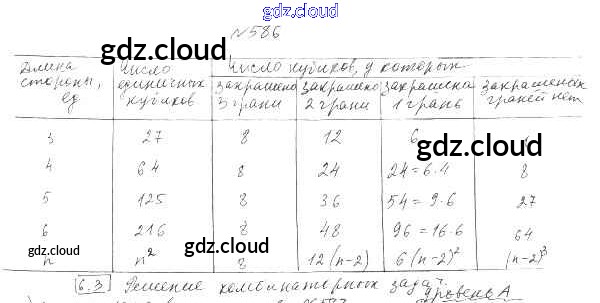 gdz.cloud
№586
gdz.cloud
Длина стороны, ед
Число единичных кубиков
Число кубиков, у которых
закрашено 3 грани
закрашено 2 грани
закрашена 1 грань
закрашенных граней нет
3 27 8 12 6
gdz.cloud
4 64 8 24 24=6·4 8
5 125 8 36 54=9·6 27
6 216 8 48 96=16·6 64
gdz.cloud
gdz.cloud
n n² 8 12(n-2) 6(n-2)² (n-2)³
6.3 Решение комбинаторных задач
уровень А